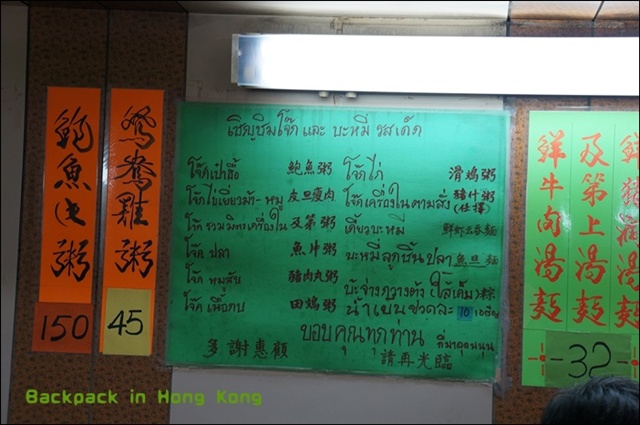 鮑魚
粥
150
鴛鴦雞粥
45
เชิญชิมโจ๊กและ บะหมี่ รสเด็ด
โจ๊กเป๋าฮื้อ 鮑魚粥
โจ๊กไข่เยี่ยวม้า-หมู 皮旦瘦肉
โจ๊กรวมมิตรเครื่องใน 及第粥
โจ๊ก ปลา 魚片粥
โจ๊ก หมูสับ 豬肉丸粥
โจ๊ก เนื้อกบ 田鸡粥
โจ๊กไก่ 滑鸡粥
โจ๊กเครื่องในตามสั่ง 豬什粥
(任擇)
เกี๊ยวบะหมี่ 鮮虾云吞麵
บะหมี่ลูกชิ้นปลา 魚旦麵
บ๊ะจ่างกวางตุ้ง (ไส้เค็ม) 粽
น้ำเย็นขวดละ 10 เหรียญ
ขอบคุณทุกท่าน ที่มาอุดหนุน
多謝惠顧 請再光臨
鮮牛肉湯麵
及第上湯麵
鮮豬
湯麵
-32-
Backpack in Hong Kong